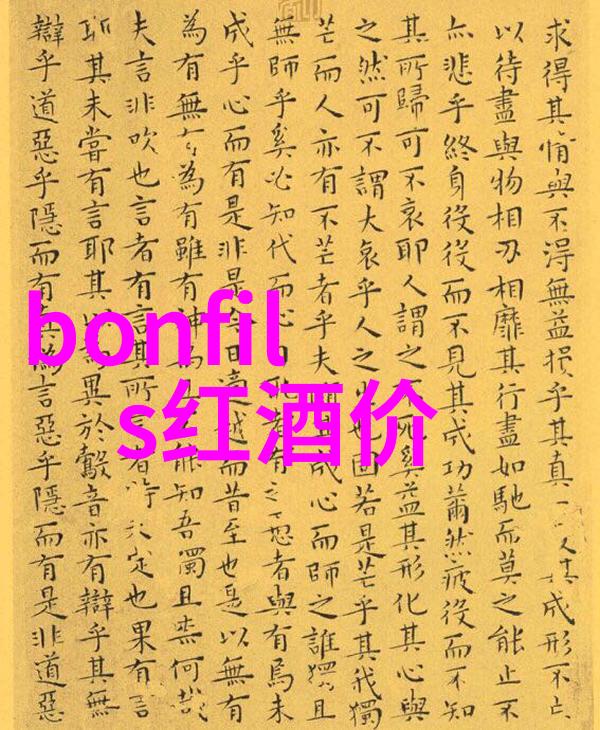 求得其情與不得無益損乎其真一其成形不亡
以待盡與物相刃相靡其行盡如馳而莫之能止不
亦悲乎終身役役而不見其成功薾然疲役而不知
其所歸可不哀耶人謂之死奚益其形化其心與
之然可不謂大哀乎人之固若是芒乎其我獨
芒而人亦有不芒者乎夫成心而師之誰獨且
無師乎奚必知代而心者有之愚者與有焉未
成乎心而有是非是今日適越而昔至也是以無有
為有無有為有雖有神能知吾獨且柰何哉
夫言非吹也言者有言其所言者特未定也果有言
耶其未嘗有言耶其以為異於鷇音亦有辯乎其無
辯乎道惡乎隱而有真偽言惡乎隱而有是非道惡
bonfil
s红酒价